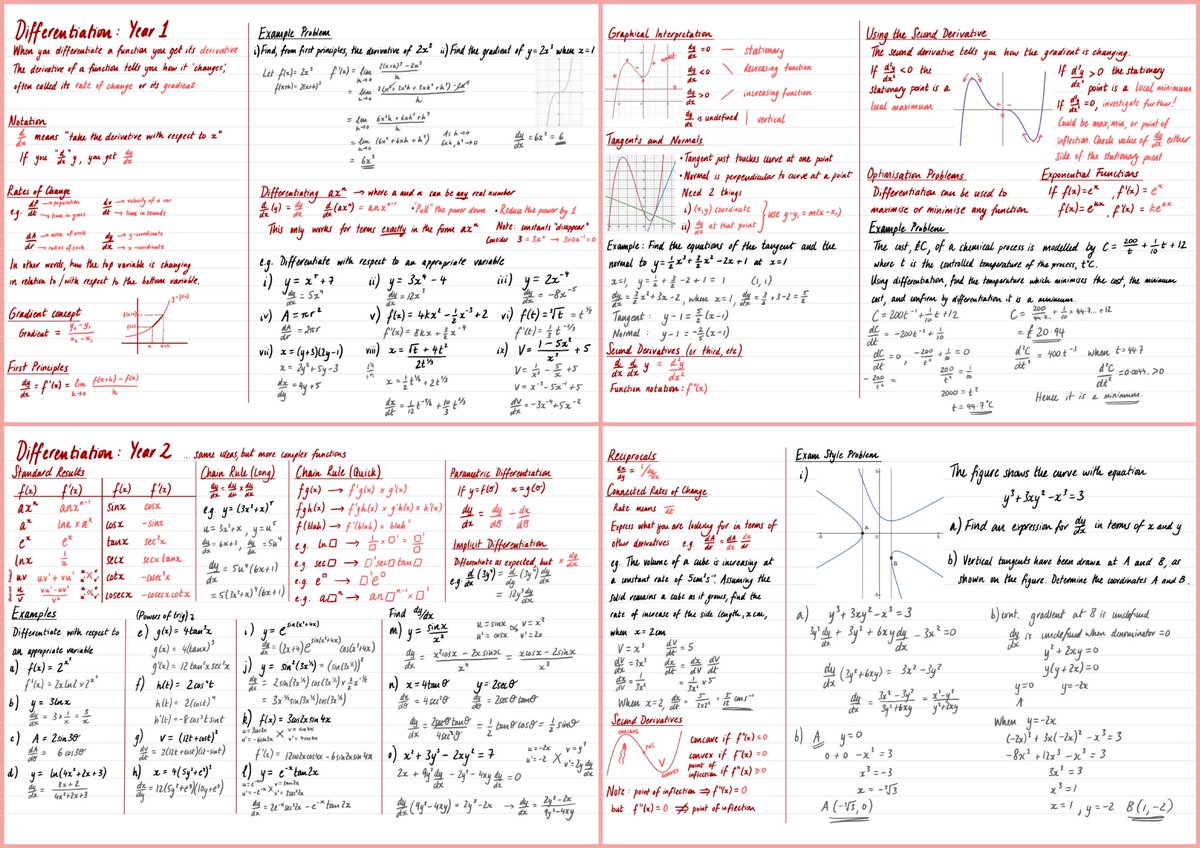 Differentiation: Year 1
When you differentiate a function you get its derivative
The derivative of a function tells you how it 'changes',
often called its rate of change or its gradient
Notation
d/dx means "take the derivative with respect to x"
If you "d/dx" y, you get dy/dx
Rates of Change
e.g. dP/dt → population → time in years
dv/dt → velocity of a car → time in seconds
dA/dr → area of circle → radius of circle
dy/dx → y-coordinate → x-coordinate
In other words, how the top variable is changing
in relation to/with respect to the bottom variable.
Gradient concept
Gradient = (y₂-y₁)/(x₂-x₁)
First Principles
dy/dx = f'(x) = lim h→0 (f(x+h)-f(x))/h
Example Problem
i) Find, from first principles, the derivative of 2x³
ii) Find the gradient of y=2x³ when x=1
Let f(x)=2x³
f(x+h)=2(x+h)³
f'(x)= lim h→0 (2(x+h)³-2x³)/h
= lim h→0 (2(x³+3x²h+3xh²+h³)-2x³)/h
= lim h→0 (6x²h+6xh²+2h³)/h
= lim h→0 (6x²+6xh+2h²)
As h→0
6xh, h²→0
= 6x²
dy/dx = 6x² = 6
Differentiating axⁿ → where a and n can be any real number
d/dx (y) = dy/dx
d/dx (axⁿ) = anxⁿ⁻¹
• "Pull" the power down
• Reduce the power by 1
This only works for terms exactly in the form axⁿ
Note: constants "disappear"
Consider 3 = 3x⁰ → 3×0x⁻¹=0
e.g. Differentiate with respect to an appropriate variable
i) y = x⁵+7
dy/dx = 5x⁴
ii) y = 3x⁴-4
dy/dx = 12x³
iii) y = 2x⁻⁴
dy/dx = -8x⁻⁵
iv) A = πr²
dA/dr = 2πr
v) f(x) = 4kx²-½x⁻³+2
f'(x) = 8kx+3/2 x⁻⁴
vi) f(t) = ³√t = t^1/3
f'(t) = 1/3 t^-2/3
vii) x = (y+3)(2y-1)
x = 2y²+5y-3
dx/dy = 4y+5
viii) x = (√t + 4t²)/(2t^1/3)
x = ½t^1/6 + 2t^5/3
dx/dt = 1/12 t^-5/6 + 10/3 t^2/3
ix) V = (1-5x²)/x³ + 5
V = 1/x³ - 5/x + 5
V = x⁻³-5x⁻¹+5
dV/dx = -3x⁻⁴+5x⁻²
Graphical Interpretation
dy/dx = 0 — stationary
dy/dx < 0 \ decreasing function
dy/dx > 0 / increasing function
dy/dx is undefined | vertical
Tangents and Normals
• Tangent just touches curve at one point
• Normal is perpendicular to curve at a point
Need 2 things
i) (x,y) coordinate
ii) dy/dx at that point
use y-y₁=m(x-x₁)
Example: Find the equations of the tangent and the
normal to y=½x³+3/2x²-2x+1 at x=1
x=1, y=½+3/2-2+1=1 (1,1)
dy/dx = 3/2x²+3x-2, when x=1, dy/dx = 3/2+3-2 = 5/2
Tangent: y-1=5/2(x-1)
Normal: y-1=-2/5(x-1)
Second Derivatives (or third, etc)
d/dx d/dx y = d²y/dx²
Function notation: f''(x)
Using the Second Derivative
The second derivative tells you how the gradient is changing.
If d²y/dx² < 0 the
stationary point is a
local maximum
If d²y/dx² > 0 the stationary
point is a local minimum
If d²y/dx² = 0, investigate further!
Could be max, min, or point of
inflection. Check value of dy/dx either
side of the stationary point
Optimisation Problems
Differentiation can be used to
maximise or minimise any function
Exponential Functions
If f(x)=eˣ, f'(x)=eˣ
f(x)=e^kx, f'(x)=ke^kx
Example Problem
The cost, £C, of a chemical process is modelled by C= 200/t + 1/10 t + 12
where t is the controlled temperature of the process, t°C.
Using differentiation, find the temperature which minimises the cost, the minimum
cost, and confirm by differentiation it is a minimum.
C = 200t⁻¹+1/10 t+12
dC/dt = -200t⁻²+1/10
dC/dt = 0, -200/t² + 1/10 = 0
200/t² = 1/10
2000 = t²
t = 44.7°C
C = 200/44.7... + 1/10 × 44.7... + 12
= £20.94
d²C/dt² = 400t⁻³ when t=44.7
d²C/dt² = 0.0044.. > 0
Hence it is a minimum.
Differentiation: Year 2 ...same ideas, but more complex functions
Standard Results
f(x) f'(x) f(x) f'(x)
axⁿ anxⁿ⁻¹ sinx cosx
aˣ lna × aˣ cosx -sinx
eˣ eˣ tanx sec²x
lnx 1/x secx secx tanx
uv uv'+vu' cotx -cosec²x
u/v (vu'-uv')/v² cosecx -cosecx cotx
Chain Rule (Long)
dy/dx = dy/du × du/dx
e.g. y = (3x²+x)⁵
u = 3x²+x, y = u⁵
du/dx = 6x+1, dy/du = 5u⁴
dy/dx = 5u⁴(6x+1)
= 5(3x²+x)⁴(6x+1)
Chain Rule (Quick)
fg(x) → f'g(x) × g'(x)
fgh(x) → f'gh(x) × g'h(x) × h'(x)
f(blah) → f'(blah) × blah'
e.g. ln□ → 1/□ × □' = □'/□
e.g. sec□ → □'sec□tan□
e.g. e^□ → □'e^□
e.g. a□ⁿ → an□ⁿ⁻¹ × □'
Parametric Differentiation
If y=f(θ) x=g(θ)
dy/dx = dy/dθ ÷ dx/dθ
Implicit Differentiation
Differentiate as expected, but × dy/dx
e.g. d/dx (3y⁴) = d/dy (3y⁴) dy/dx
= 12y³ dy/dx
Examples
Differentiate with respect to
an appropriate variable
a) f(x) = 2^x²
f'(x) = 2x ln2 × 2^x²
b) y = 3lnx
dy/dx = 3 × 1/x = 3/x
c) A = 2sin3θ
dA/dθ = 6cos3θ
d) y = ln(4x²+2x+3)
dy/dx = (8x+2)/(4x²+2x+3)
(Powers of trig)
e) g(x) = 4tan³x
g(x) = 4(tanx)³
g'(x) = 12tan²x sec²x
f) h(t) = 2cos⁴t
h(t) = 2(cost)⁴
h'(t) = -8cos³t sint
g) v = (12t+cost)²
dv/dt = 2(12t+cost)(12-sint)
h) x = 4(5y²+eʸ)³
dx/dy = 12(5y²+eʸ)²(10y+eʸ)
i) y = e^sin(x²+4x)
dy/dx = (2x+4)e^sin(x²+4x) cos(x²+4x)
j) y = sin²(3x^½) = (sin(3x^½))²
dy/dx = 2sin(3x^½)cos(3x^½) × 3/2 x^-½
= 3x^-½ sin(3x^½)cos(3x^½)
k) f(x) = 3cos2x sin4x
u=3cos2x v=sin4x
u'=-6sin2x v'=4cos4x
f'(x) = 12cos2x cos4x - 6sin2x sin4x
l) y = e⁻ˣ tan2x
u=e⁻ˣ v=tan2x
u'=-e⁻ˣ v'=2sec²2x
dy/dx = 2e⁻ˣsec²2x - e⁻ˣtan2x
Find dy/dx
m) y = sinx/x²
u=sinx v=x²
u'=cosx v'=2x
dy/dx = (x²cosx-2xsinx)/x⁴ = (xcosx-2sinx)/x³
n) x = 4tanθ y = 2secθ
dx/dθ = 4sec²θ dy/dθ = 2secθtanθ
dy/dx = 2secθtanθ/4sec²θ = ½tanθcosθ = ½sinθ
o) x²+3y³-2xy² = 7
u=-2x v=y²
u'=-2 v'=2y dy/dx
2x + 9y² dy/dx - 2y² - 4xy dy/dx = 0
dy/dx (9y²-4xy) = 2y²-2x → dy/dx = (2y²-2x)/(9y²-4xy)
Reciprocals
dy/dx = 1/(dx/dy)
Connected Rates of Change
Rate means /dt
Express what you are looking for in terms of
other derivatives e.g. dA/dt = dA/dr dr/dt
eg. The volume of a cube is increasing at
a constant rate of 5cm³s⁻¹. Assuming the
solid remains a cube as it grows, find the
rate of increase of the side length, x cm,
when x=2cm
V = x³
dV/dt = 5
dV/dx = 3x²
dx/dt = dx/dV dV/dt
dx/dV = 1/3x²
= 1/3x² × 5
When x=2, dx/dt = 5/(3×2²) = 5/12 cms⁻¹
Second Derivatives
concave
P.O.I.
convex
concave if f''(x) ≤ 0
convex if f''(x) ≥ 0
point of inflection if f''(x) ≷ 0
Note: point of inflection ⇒ f''(x)=0
but f''(x)=0 ⇏ point of inflection
Exam Style Problem
i)
A
B
The figure shows the curve with equation
y³+3xy²-x³=3
a) Find an expression for dy/dx in terms of x and y
b) Vertical tangents have been drawn at A and B, as
shown on the figure. Determine the coordinates A and B.
a) y³+3xy²-x³=3
3y² dy/dx + 3y² + 6xy dy/dx - 3x² = 0
dy/dx (3y²+6xy) = 3x²-3y²
dy/dx = (3x²-3y²)/(3y²+6xy) = (x²-y²)/(y²+2xy)
b) A, y=0
0+0-x³=3
x³=-3
x=-³√3
A(-³√3, 0)
b)cont. gradient at B is undefined
dy/dx is undefined when denominator =0
y²+2xy=0
y(y+2x)=0
y=0 y=-2x
A
When y=-2x
(-2x)³+3x(-2x)²-x³=3
-8x³+12x³-x³=3
3x³=3
x³=1
x=1, y=-2 B(1,-2)